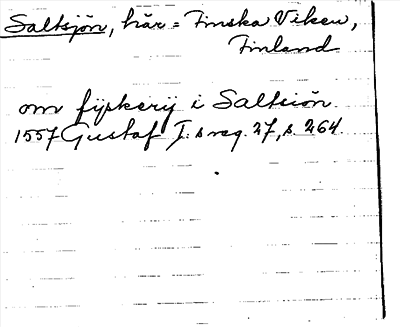 Saltsjön, här = Finska Viken,
Finland
om fijskerij i Saltsiön.
1557 Gustaf I:s reg. 27, s. 264.